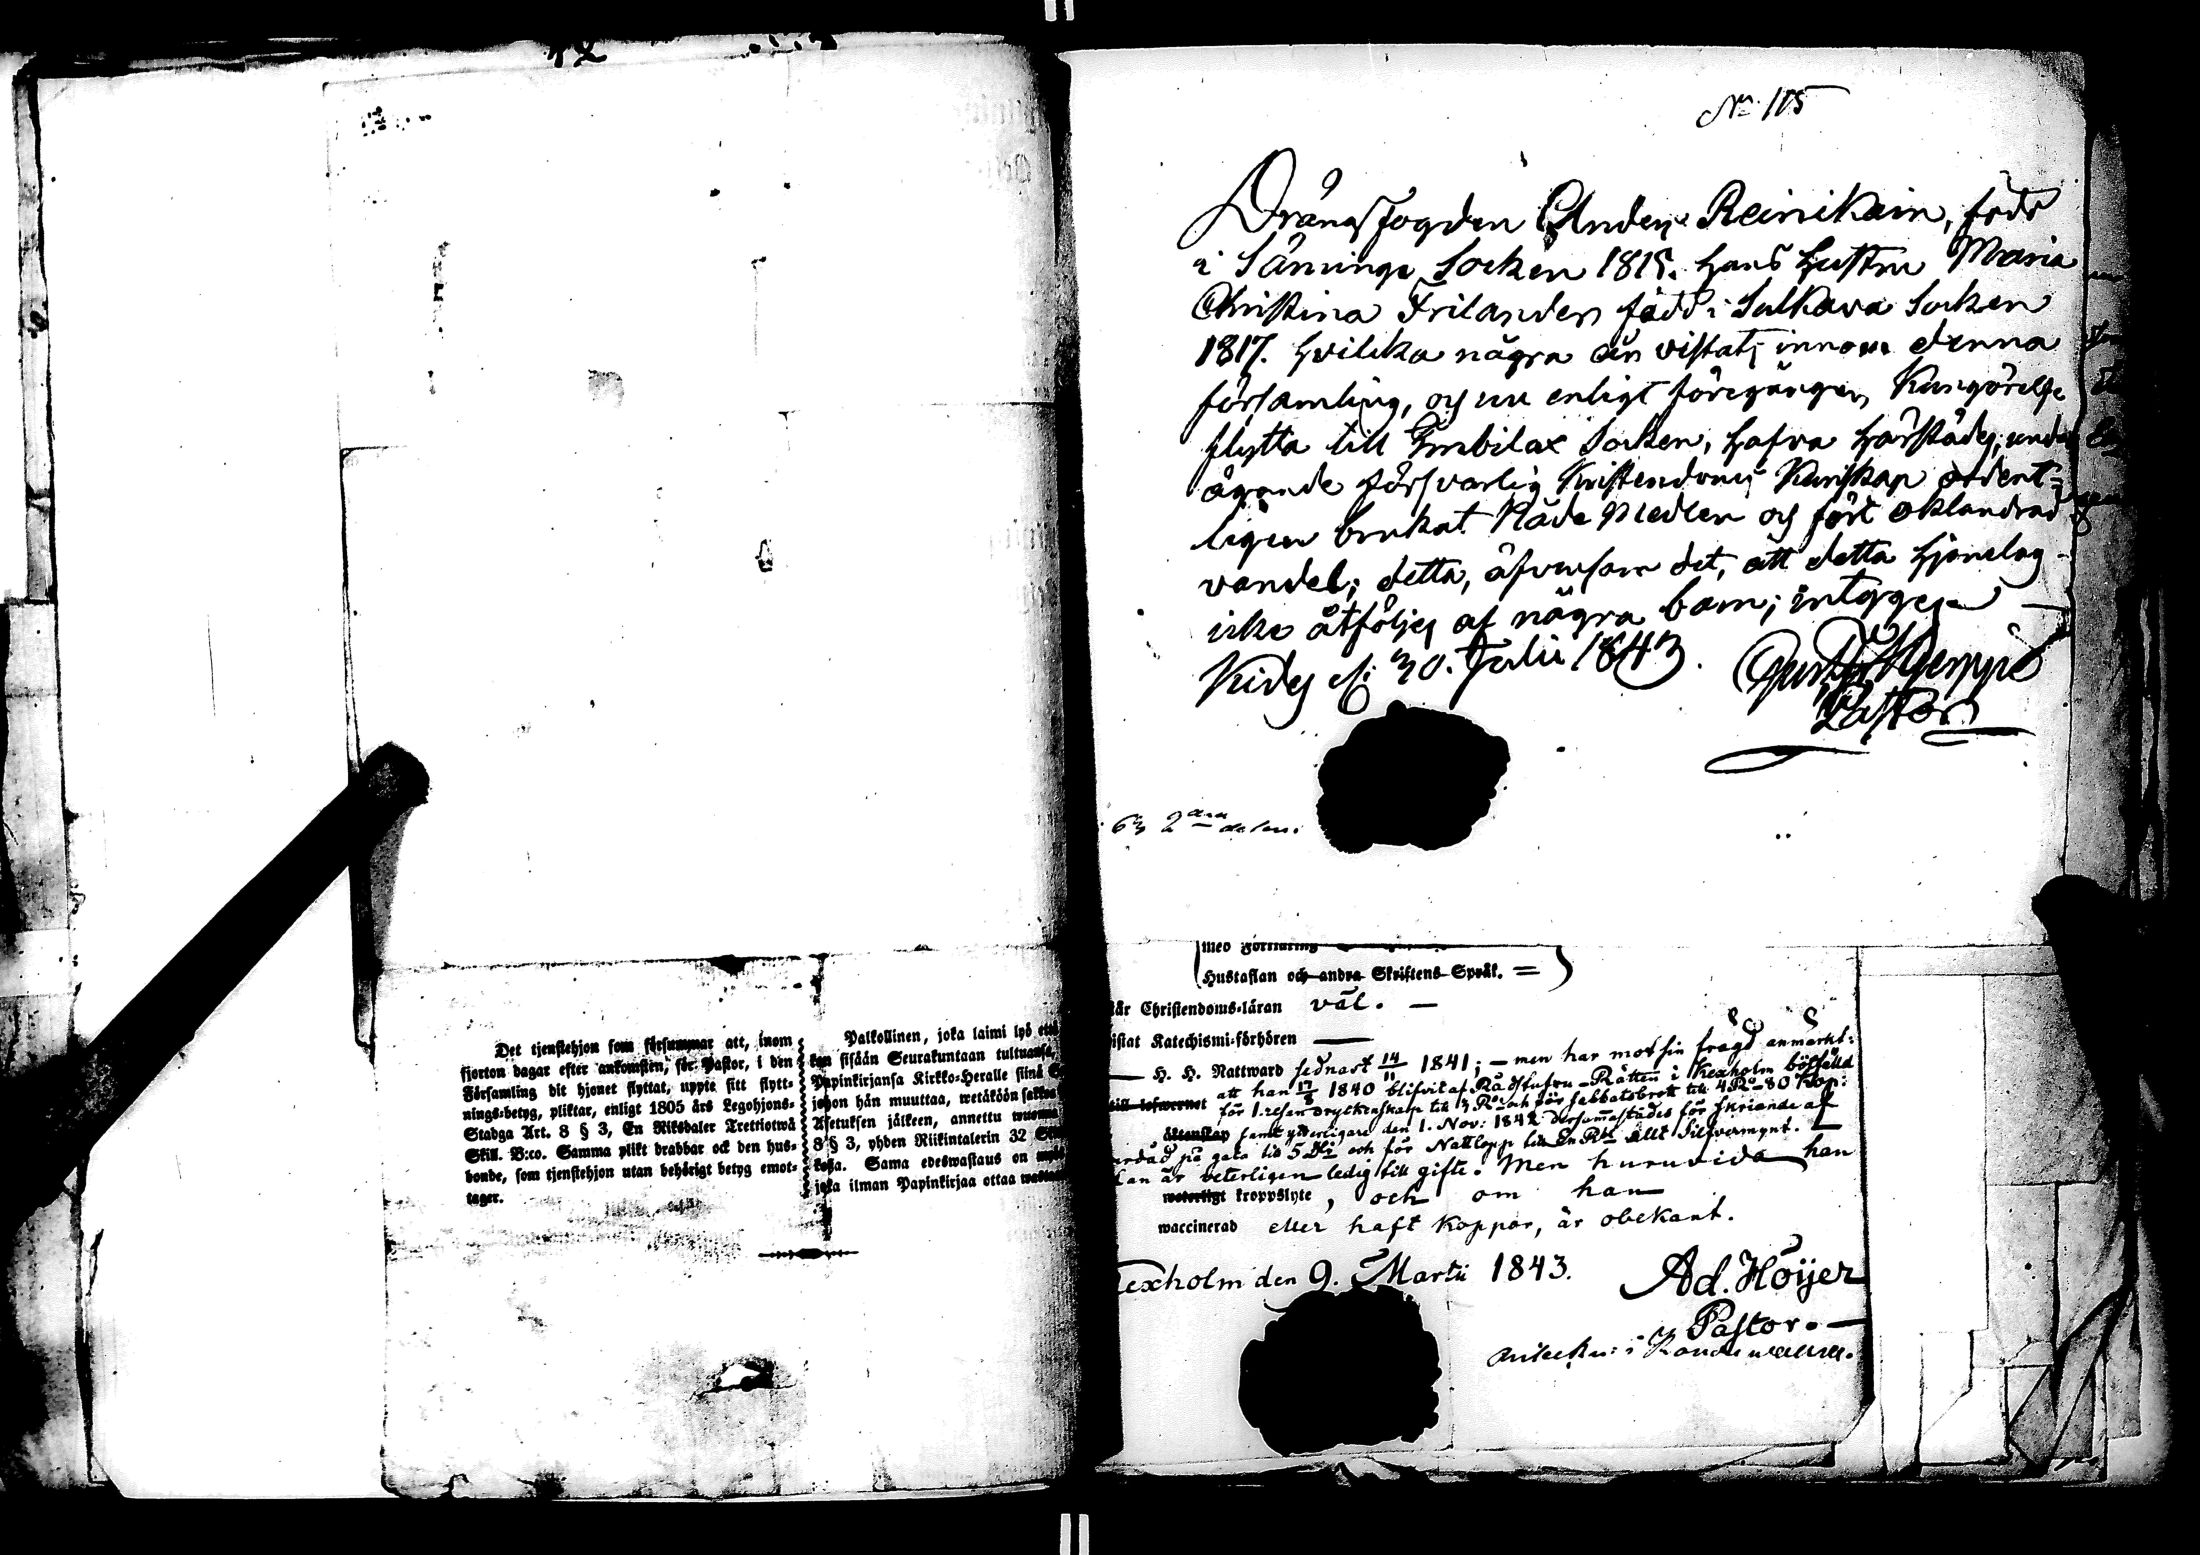 Det tjenstehjon som försummar att, inom
fjorton dagar efter ankomsten, för Pastor, i den
Församling dit hjonet flyttat, uppte sitt flytt-
nings-betyg, pliktar, enligt 1805 års Legohjons-
Stadga Art. 8 § 3, En Riksdaler Trettiotwå
Skill. B:co. Samma plikt drabbar ock den hus-
bonde, som tjenstehjon utan behörigt betyg emot-
tager.
Palkollinen, joka laimi lyö
sisään Seurakuntaan
Papinkirjansa Kirkko-Heralle siinä
johon hän muuttaa, wetäköön
Asetuksen jälkeen, annettu
8 § 3, yhden Riikintalerin 32
Sama edeswastaus on
joka ilman Papinkirjaa ottaa
No 115
Drängsfogden Anders Reinikain, född
i Säminge Socken 1815. hans hustru Maria
Christina Frilander född i Sulkava Socken
1817. hvilka några år vistats innom denna
församling, och nu enligt föregången Kungörelse
flytta till Imbilax Socken, hafva härstädes, under
ägande försvarlig Kristendoms Kunskap ordent-
ligen brukat Nåde Medlen och fört oklandrad
vandel; detta, äfvensom det, att detta hjonelag
icke åtföljes af några barn; intygas
Kides d. 30. Julii 1843.
Pastor
63 2
med Förklaring
Hustaflan och andra Skriftens Språk. =
Christendoms-läran väl. —
Katechismi-förhören —
— H. H. Nattward sednast 14/11 1841; — men har mot sin frägd anmärkt:
att han 17/8 1840 blifvit af Rådstufvu-Rätten i Kexholm bötfälld
för 1. resan dryckenskap till 3 Ro och för sabbatsbrott till 4 Ro 80 Kop:
samt ytterligare den 1. Nov: 1842 dersammastädes för skriande af
på gata till 5 och för Nattlopp till En Rbl allt Silfvermynt. —
är veterligen ledig till gifte. Men huruvida han
weterligt kroppslyte, och om han
waccinerad eller haft koppor, är obekant.
Kexholm den 9. Martii 1843.
Ad. Höijer
Pastor. —